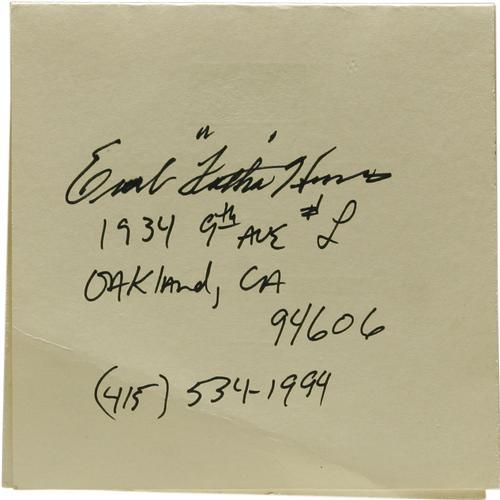 Earl "Fatha" Hines
1934 9th AVE # L
OAKland, CA
94606
(415) 534-1994